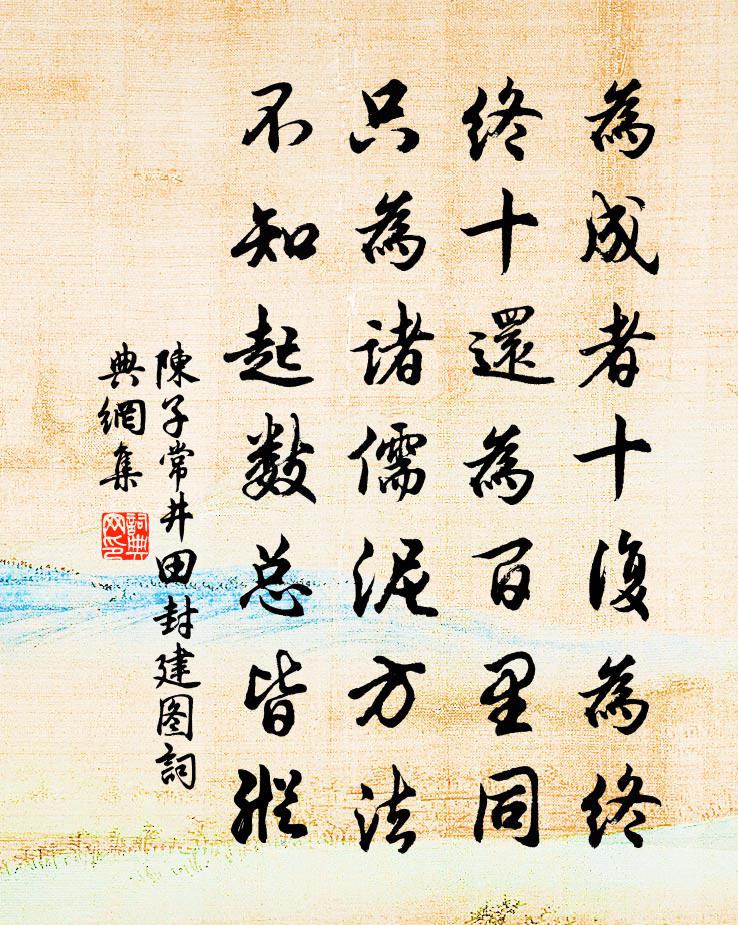 為成者十復為終
終十還為百里同
只為諸儒泥方法
不知起数总皆縱
陳子常井田封建图詞
典網集
詞典
网印